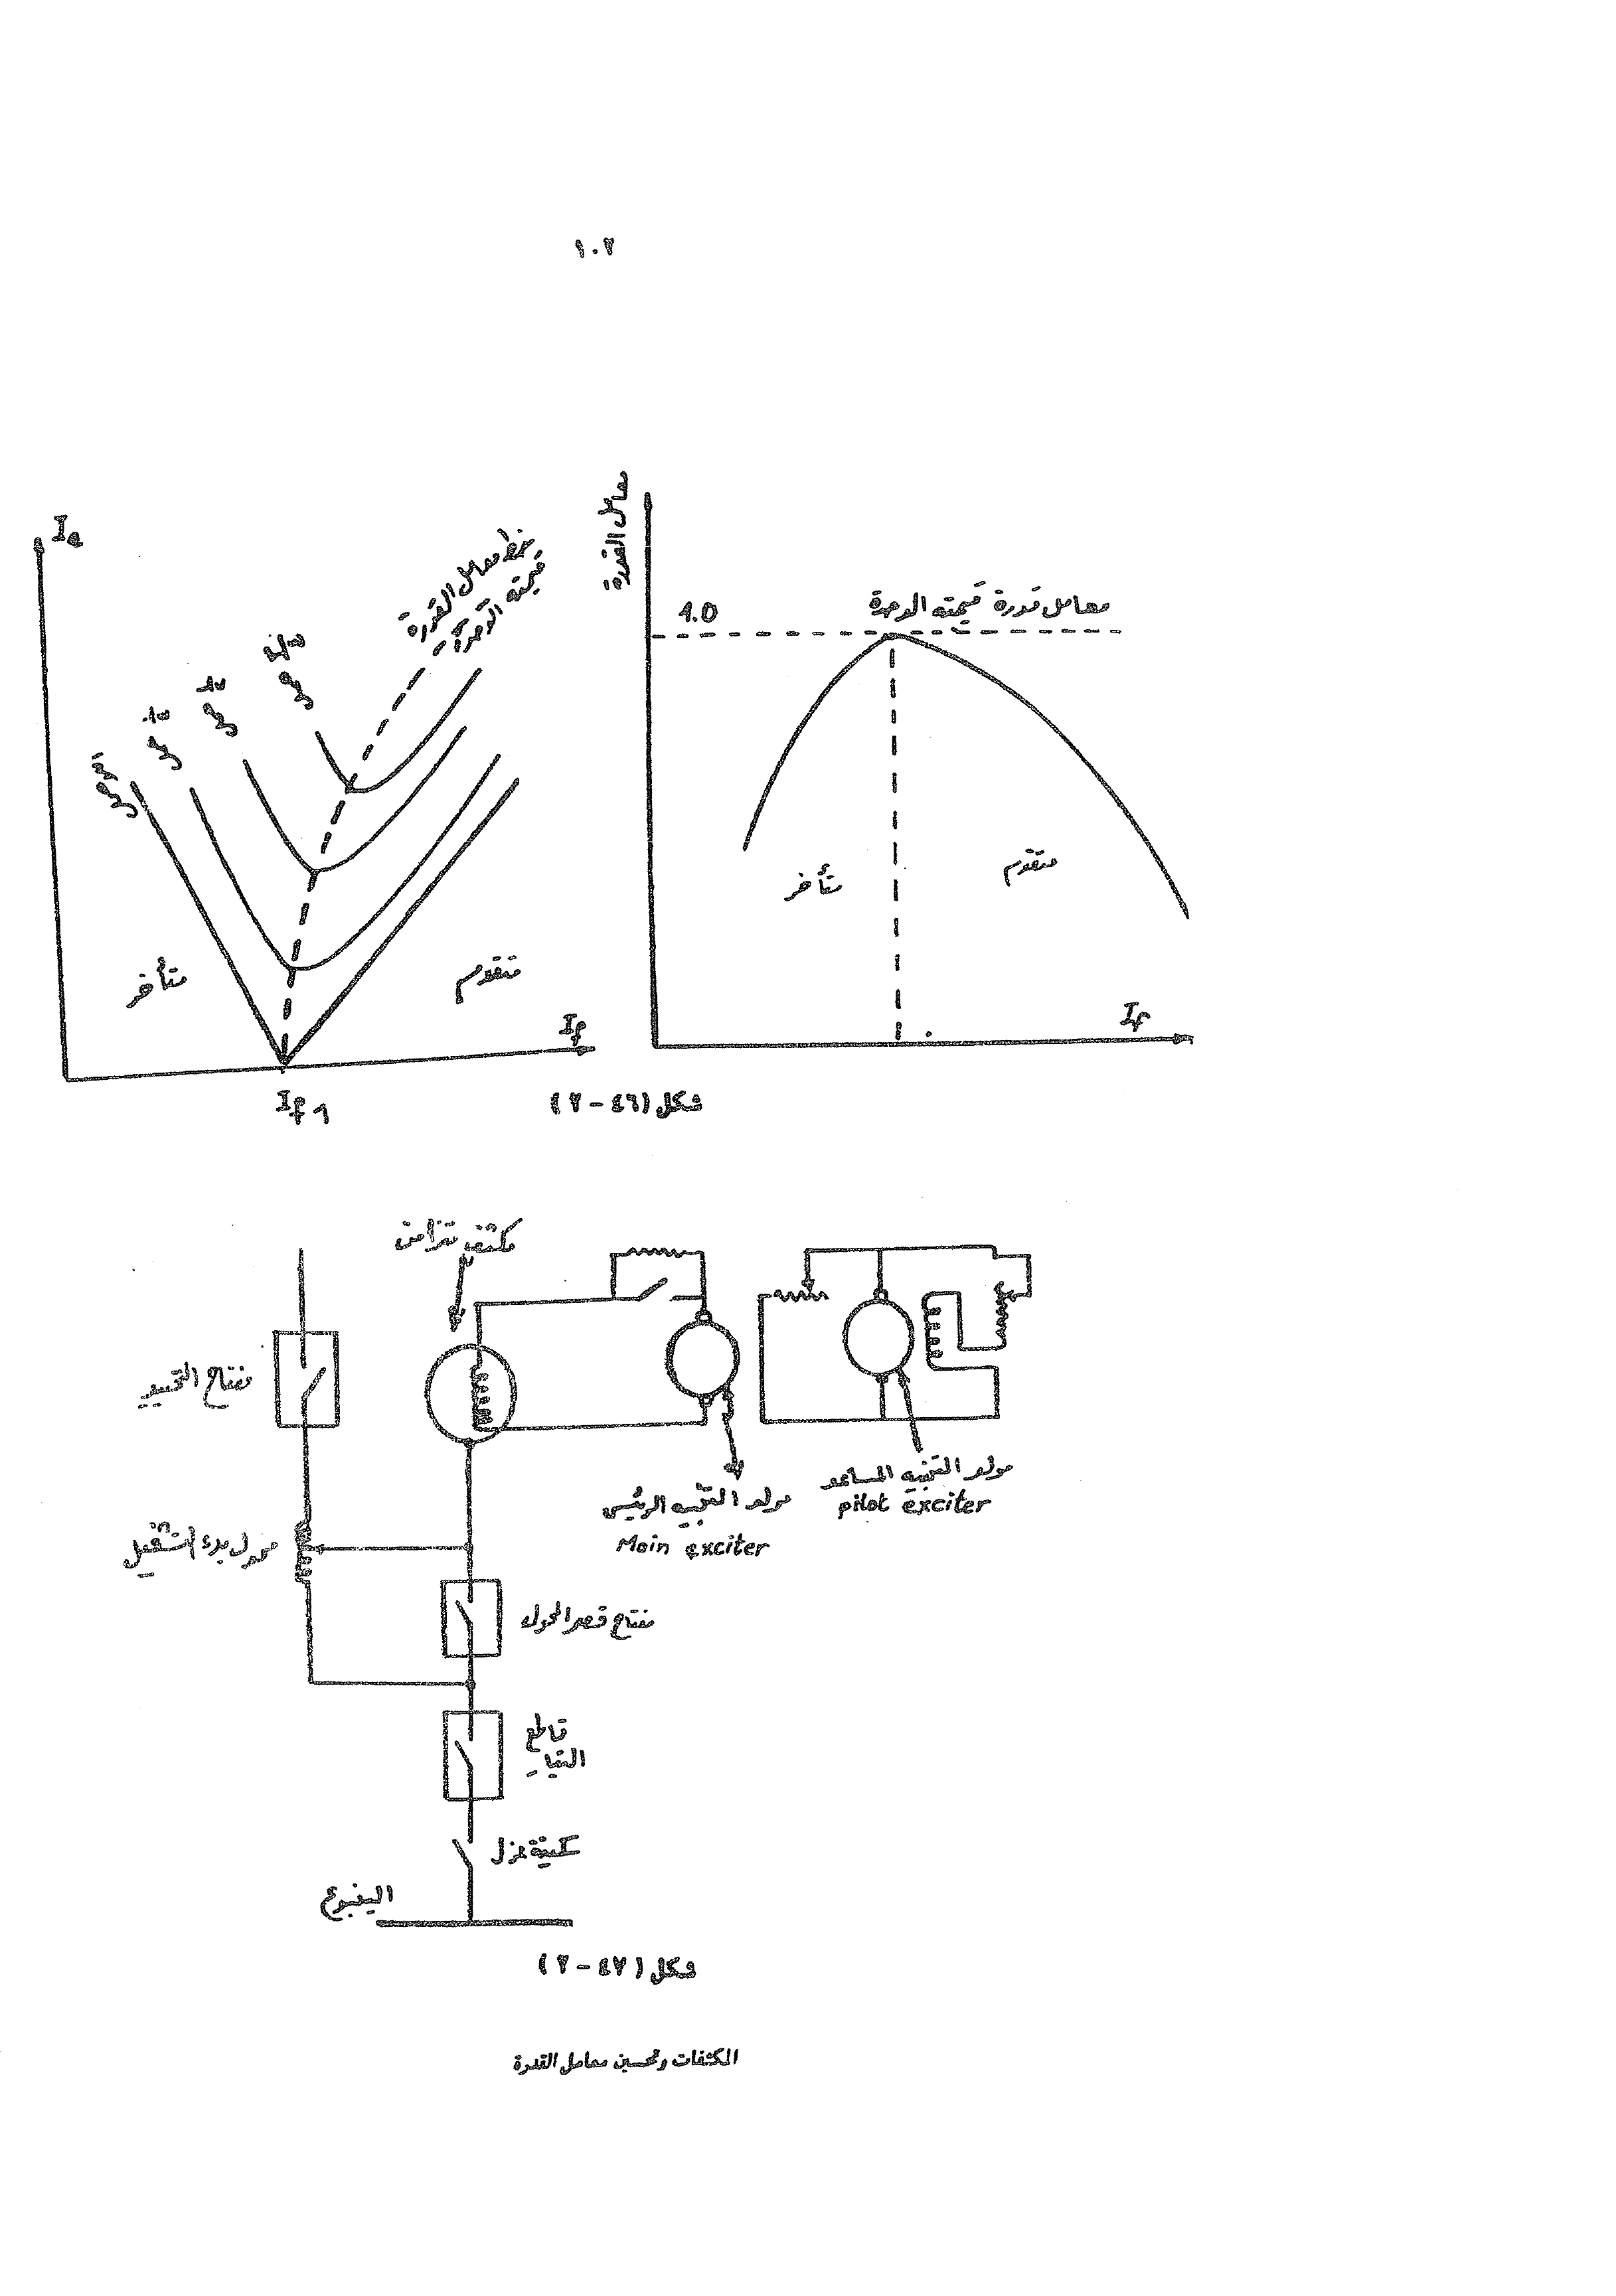 ١٠٢
Ia
خط معامل القدرة
قيمته الوحدة
متأخر
متقدم
If
If1
معامل القدرة
1.0
معامل قدرة قيمته الوحدة
متأخر
متقدم
If
شكل (٤٦ - ٢)
مكثف تزامن
مفتاح التحييد
مولد التنبيه الرئيسي
Main exciter
مولد التنبيه المساعد
pilot exciter
محول بدء التشغيل
مفتاح قصر المحول
قاطع
التيار
سكينة عزل
الينبوع
شكل (٤٧ - ٢)
المكثفات وتحسين معامل القدرة